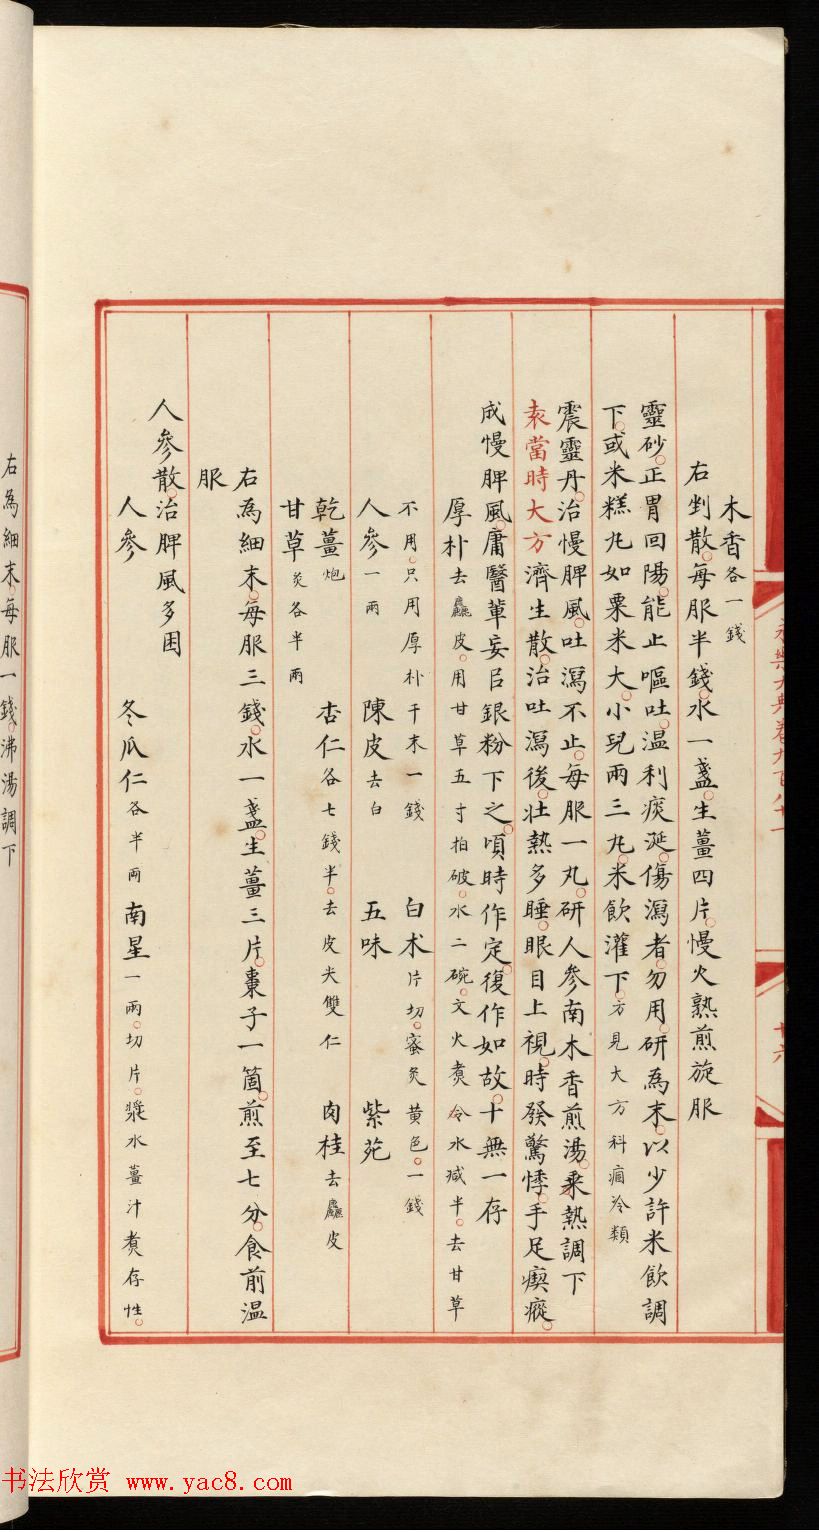 永樂大典卷九百八十一
廿六
木香各一錢
右剉散。每服半錢。水一盞。生薑四片。慢火熟煎旋服
靈砂。正胃回陽。能止嘔吐。温利痰涎。傷瀉者。勿用。研為末。以少許米飲調
下。或米糕丸如粟米大。小兒兩三丸。米飲灌下。方見大方科痼冷類
震靈丹。治慢脾風。吐瀉不止。每服一丸。研人參南木香煎湯。乘熱調下
袁當時大方濟生散。治吐瀉後。壯熱多睡。眼目上視。時發驚悸。手足瘈瘲。
成慢脾風。庸醫輩妄㠯銀粉下之。頃時作定。復作如故。十無一存
厚朴去麤皮。用甘草五寸拍破。水二碗。文火煮令水減半。去甘草
不用。只用厚朴千末一錢 白术片切。蜜炙黄色。一錢
人參一兩 陳皮去白 五味 紫苑
乾薑炮 杏仁各七錢半。去皮尖雙仁 肉桂去麤皮
甘草炙各半兩
右為細末。每服三錢。水一盞。生薑三片。棗子一箇。煎至七分。食前温
服
人參散。治脾風多困
人參 冬瓜仁各半兩 南星一兩。切片。漿水薑汁煮存性。
右為細末。每服一錢。沸湯調下
书法欣赏 www.yac8.com